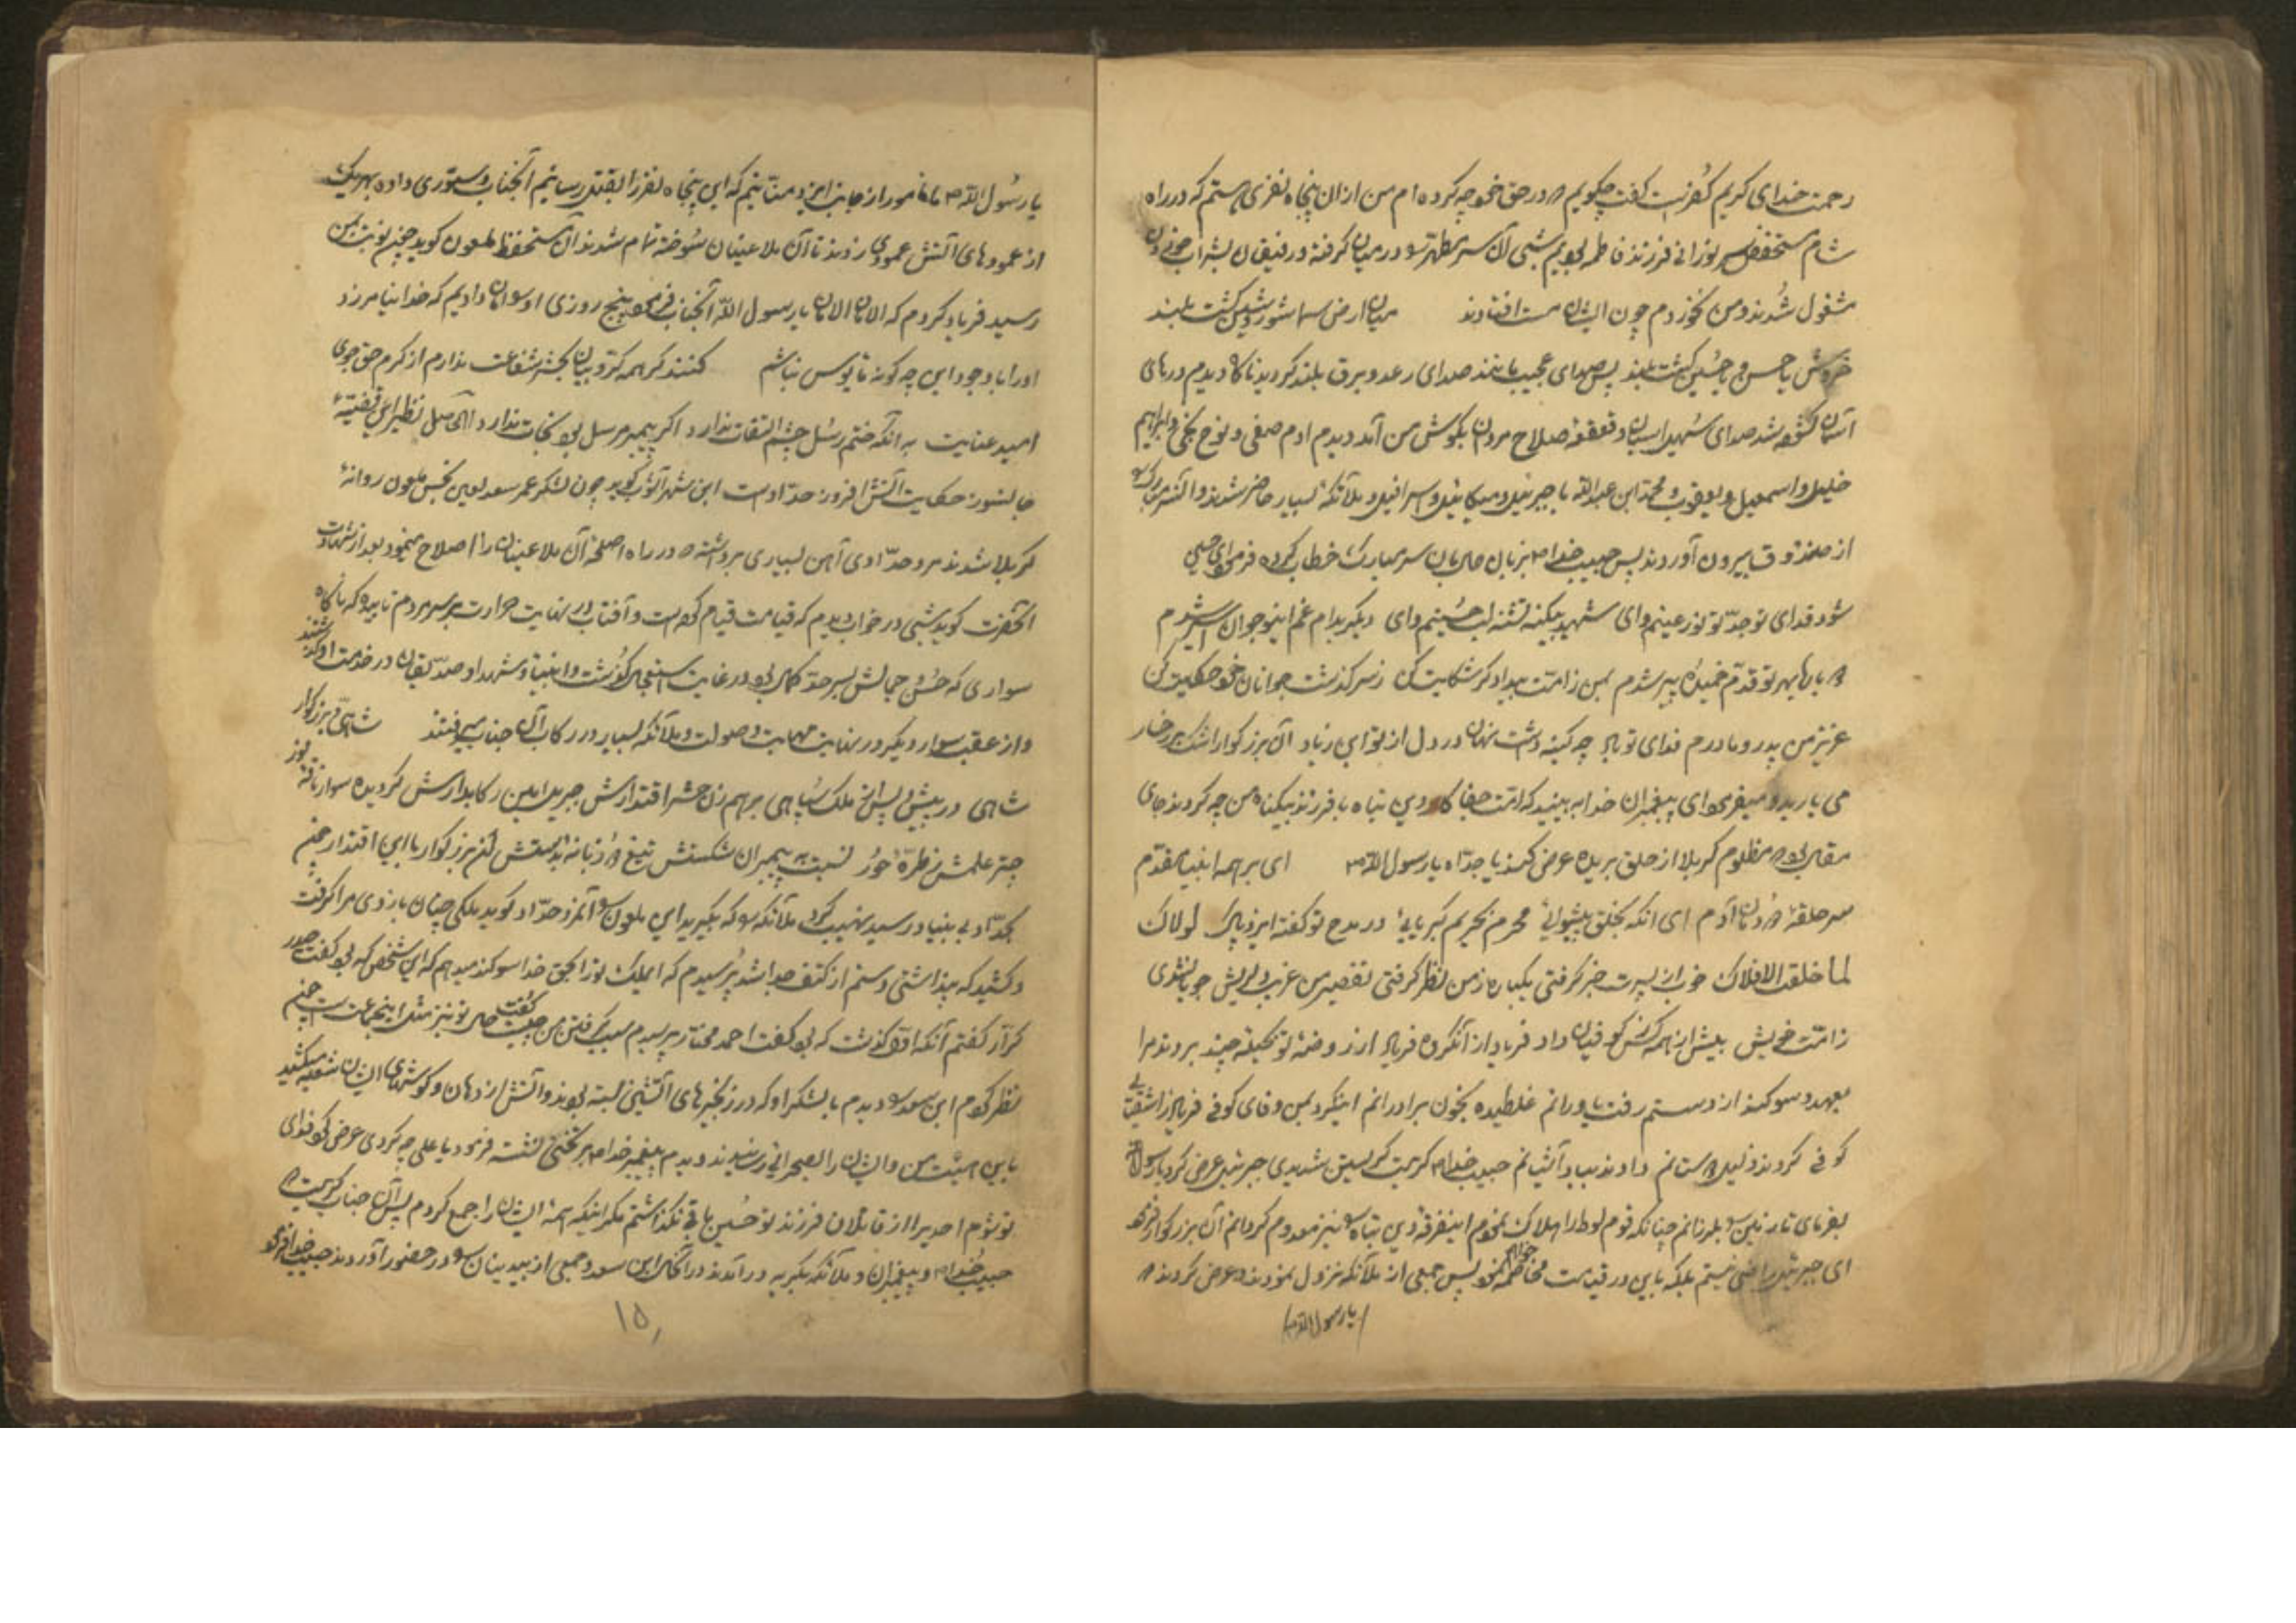 رحمت خدای کریم کفر نیست گفت چگویم که در حق خود چه کرده ام من از ان پنجاه نفری هستم که در راه
شام مستحفظ سر نورانی فرزند فاطمه بودیم شبی آن سر مطهر را در میان گرفته و رفیقان بشراب خوردن
مشغول شدند و من نخوردم چون ایشان مست افتادند میان ارض و سما شور و شین گشت بلند
خروش یا حسن و یا حسین گشت بلند پس صداهای عجیب مانند صدای رعد و برق بلند گردید ناگاه دیدم درهای
آسمان گشوده شد صدای شیهه اسبان و قعقعه صلاح مردان بگوش من آمد دیدم ادم صفی و نوح نجی و ابراهیم
خلیل و اسمعیل و یعقوب و محمد ابن عبدالله با جبرئیل و میکائیل و اسرافیل و ملائکه بسیار حاضر شدند و آن سر مبارک را
از صندوق بیرون آوردند پس حبیب خدا بزبان حال بان سر مبارک خطاب کرده فرمود ای حسین
شود فدای تو جد تو نور عینم وای شهید بیکنه تشنه لب حسینم وای دیگر بدام غم اینوجوان اسیر شدم
ز بار هجر تو قدم خمیده پیر شدم بمن ز امت بیدادگر شکایت کن ز سرگذشت جوانان خود حکایت کن
عزیز من پدر و مادرم فدای تو باد چه کینه داشت نهان در دل از تو ابن زیاد آن بزرگوار اشک بر رخسار
می بارید و میفرمود ای پیغمبران خدا به بینید که امت جفاکار و دین تباه با فرزند بیگناه من چه کردند جای
مقال بود که مظلوم کربلا از حلق بریده عرض کند یا جداه یا رسول الله ای بر همه انبیا مقدم
سر حلقه دودمان آدم ای انکه بخلق پیشوائی محرم بحریم کبریایی در مدح تو گفته ایزد پاک لولاک
لما خلقت الافلاک خوب از پسرت خبر گرفتی یکباره ز من نظر گرفتی تقصیر من غریب دلریش چو بشنوی
ز امت خویش بیش از همه کس کوفیان داد فریاد از آنگروه فریاد از روضه تو بحیله چند بردند مرا
بعهد و سوگند از دستم رفت یاورانم غلطیده بخون برادرانم اینکرد بمن وفای کوفی فریاد ز اشقیای
کوفی کردند ذلیل دادند بباد آشیانم حبیب خدا گریست گریستن شدیدی جبرئیل عرض کرد یا رسول الله
بفرمای تا زمین را بلرزانم چنانکه قوم لوط را هلاک نمودم اینفرقه دین تباه را نیز معدوم گردانم آن بزرگوار فرمود
ای جبرئیل راضی نیستم بلکه باین در قیامت مخاصمه خواهم نمود پس جمعی از ملائکه نزول نمودند و عرض کردند که
یا رسول الله
یا رسول الله ما مامور از جانب ایزد منانیم که این پنجاه نفر را بقتل رسانیم آنجناب دستوری داده بهر یک
از عمودهای آتش عمودی زدند تا آن ملاعینان سوخته تمام شدند آن مستحفظ ملعون گوید چون نوبت بمن
رسید فریاد کردم که الامان الامان یا رسول الله آنجناب فرمود پنج روزی او را امان دادیم که خدا نیامرزد
او را با وجود این چه گونه مایوس نباشم کنند گر همه کروبیان بحشر شفاعت ندارم از کرم حق جوی
امید عنایت به انکه ختم رسل چشم التفات ندارد اگر پیمبر مرسل بود نجات ندارد الحاصل نظیر این قضیه
جانسوز حکایت آتش افروز حدادست ابن شهرآشوب گوید چون لشکر عمر سعد لعین نحس ملعون روانه
کربلا شدند مرد حدادی آهن بسیاری برداشته در راه اصلحه آن ملاعینان را اصلاح مینمود بعد از شهادت
آنحضرت گوید شبی در خواب دیدم که قیامت قیام نموده است و آفتاب در نهایت حرارت بر سر مردم تابیده که ناگاه
سواری که حسن جمالش بسر حد کمال بود در غایت استعجال گذشت و انبیا و شهدا و صدیقان در خدمت او گذشتند
و از عقب سوار دیگر در نهایت مهابت و صولت و ملائکه بسیار در رکاب آن جناب میرفتند شاهی بزرگوار
شاهی در پیش و پس از ملک سپاهی برهم زن حشر اقتدارش جبریل امین رکابدارش گردیده سوار ناقه نور
چتر علمش ز طره حور نسبت به پیمبران شکستش تیغ دو زبانه بدستش آن بزرگوار با این اقتدار چون
بحداد بی بنیاد رسید نهیب کرد ملائکه را که بگیرید این ملعون را آنمرد حداد گوید ملکی چنان بازوی مرا گرفت
و کشید که پنداشتی دستم از کتف جدا شد پرسیدم که ایملک تو را بحق خدا سوگند میدهم که این شخص که بود گفت حیدر
کرار گفتم آنکه اول گذشت که بود گفت احمد مختار پرسیدم سبب گرفتن من چیست گفت حال تو نیز مثل اینجماعت است چون
نظر کردم ابن سعد را دیدم با لشکر او که در زنجیرهای آتشین بسته بودند و آتش از دهان و گوشهای ایشان شعله میکشید
باین هیئت من و ایشان را بصحرائی رسانیدند دیدم پیغمبر خدا بر تختی نشسته فرمود یا علی چه کردی عرض کرد فدای
تو شوم احدیرا از قاتلان فرزند تو حسین باقی نگذاشتم مگر اینکه همه ایشان را جمع کردم پس آن جناب گریست
حبیب خدا و پیغمبران و ملائکه بگریه درآمدند در آنحال ابن سعد و جمعی از بیدینان را در حضور آوردند حبیب خدا فرمود
۱۵